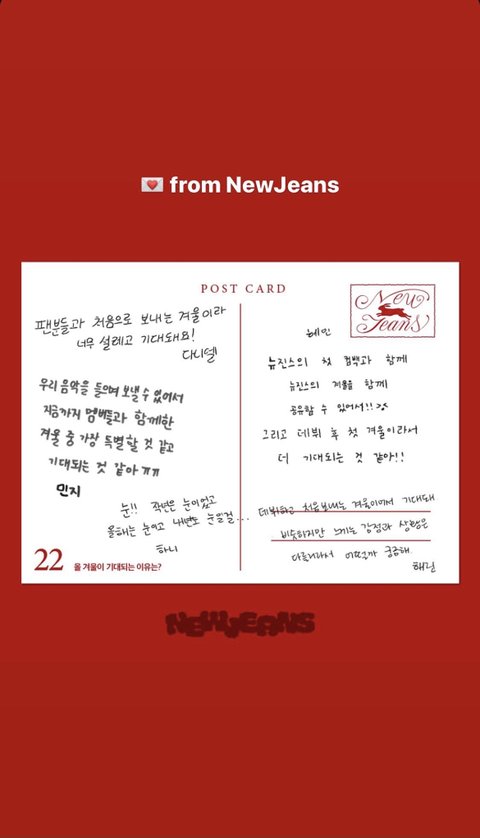 💌 from NewJeans
POST CARD
New
Jeans
팬분들과 처음으로 보내는 겨울이라
너무 설레고 기대돼요!
다니엘
우리 음악을 들으며 보낼 수 있어서
지금까지 멤버들과 함께한
겨울 중 가장 특별할 것 같고
기대되는 것 같아 ㅠㅠ
민지
눈!! 작년은 눈이었고
올해는 눈이고 내년도 눈일걸...
하니
22 올 겨울이 기대되는 이유는?
혜인
뉴진스의 첫 컴백과 함께
뉴진스의 겨울을 함께
공유할 수 있어서!!
그리고 데뷔 후 첫 겨울이라서
더 기대되는 것 같아!!
데뷔하고 처음 보내는 겨울이어서 기대돼
비슷하지만 느끼는 감정과 상황은
다를거라서 어떨까 궁금해
해린
NEWJEANS